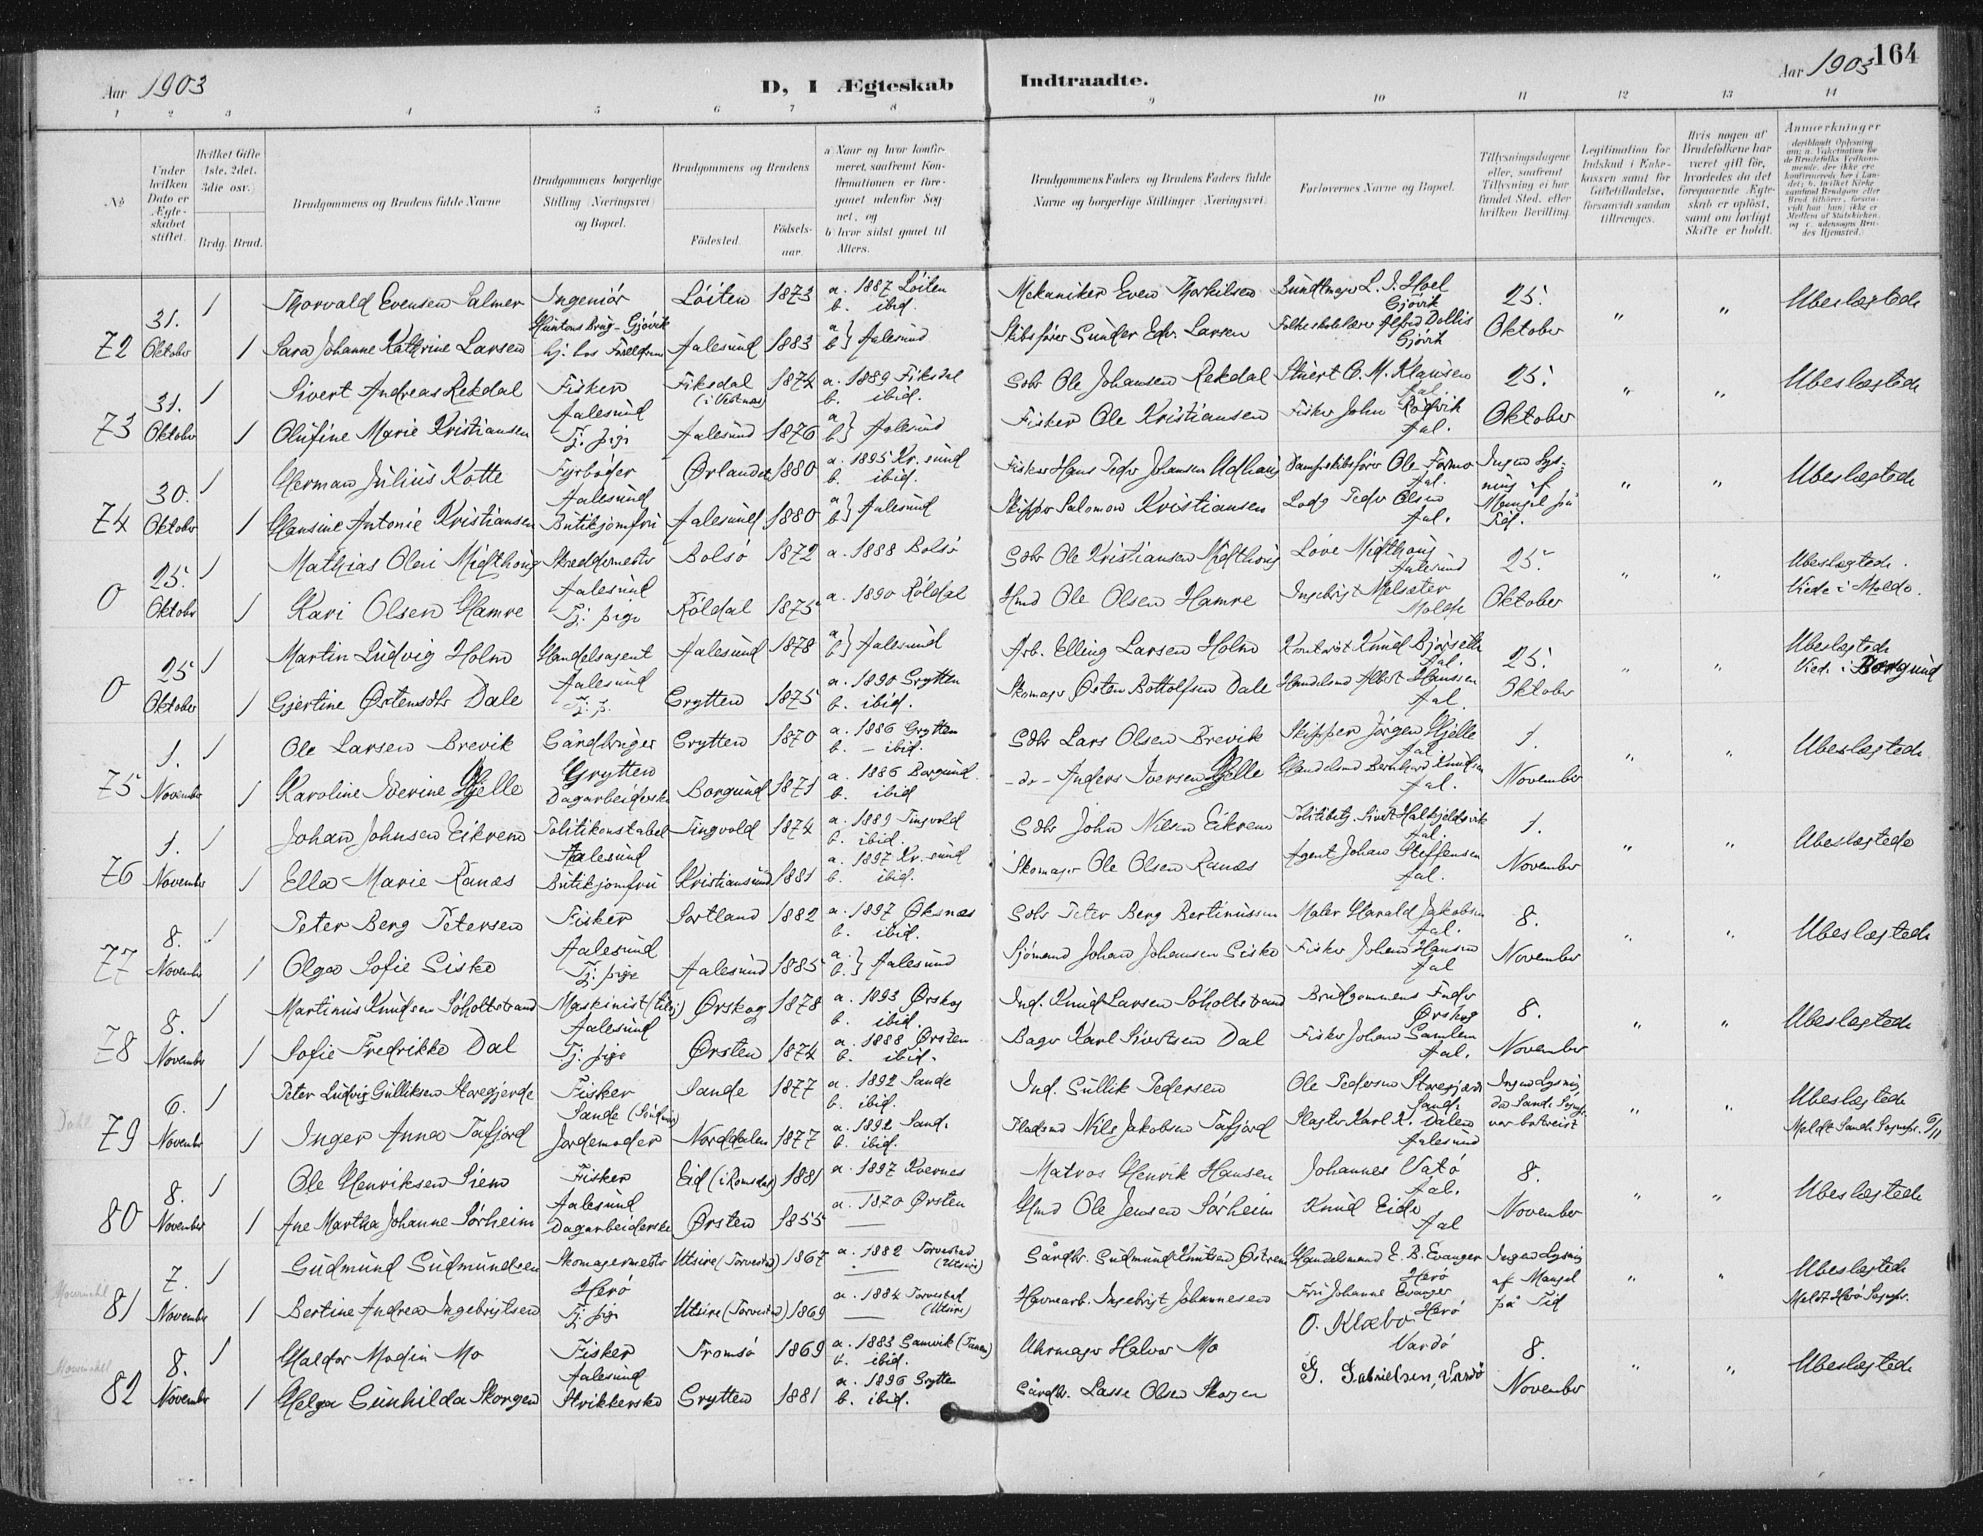 Aar 1903
D, I Ægteskab Indtraadte.
Aar 1903 164
1 2 3 4 5 6 7 8 9 10 11 12 13 14
No
Under hvilken Dato er Ægteskabet stiftet.
Hvilket Gifte 1ste, 2det, 3die osv.
Brdg. Brud.
Brudgommens og Brudens fulde Navne
Brudgommens borgerlige Stilling (Næringsvei) og Bopæl.
Brudgommens og Brudens
Fødested.
Fødselsaar
a Naar og hvor konfirmeret, saafremt Konfirmationen er foregaaet udenfor Sognet, og
b hvor sidst gaaet til Alters.
Brudgommens Faders og Brudens Faders fulde Navne og borgerlige Stillinger (Næringsvei)
Forlovernes Navne og Bopæl.
Tillysningsdagene eller, saafremt Tillysning ei har fundet Sted, efter hvilken Bevilling.
Legitimation for Indskud i Enkekassen samt for Giftetilladelse, forsaavidt saadan tiltrænges.
Hvis nogen af Brudefolkene har været gift før, hvorledes da det foregaaende Ægteskab er opløst, samt om lovligt Skifte er holdt.
Anmerkninger
72 31. Oktober 1 Thorvald Evensen Salmer Ingeniör Löiten 1873 a. 1887 Löiten b. ibid. Mekaniker Even Thorkilsen L. J. Hoel Gjövik 25. Oktober " " Ubeslægtede
1 Sara Johanne Kathrine Larsen Hj. hos Forældrene Aalesund 1883 a b } Aalesund Skibsfører Gunder Edv. Larsen Folkeskolelærer Alfred Dollis Gjövik
73 31. Oktober 1 Sivert Andreas Rekdal Fisker Aalesund Fiksdal (i Vestnes) 1874 a. 1889 Fiksdal b. ibid. Gbr Ole Johansen Rekdal Stuert O. M. Klausen Aal. 25. Oktober " " Ubeslægtede
1 Olufine Marie Kristiansen Tj. pige Aalesund 1876 a b } Aalesund Fisker Ole Kristiansen Fisker John Rödvik Aal.
74 30. Oktober 1 Herman Julius Kotte Fyrbøder Aalesund Ørlandet 1880 a. 1895 Kr. sund b. ibid. Fisker Hans Peder Johansen Udhaug Dampskibsfører Ole Formo Aal. Ingen Lysning af Mangel på Tid. " " Ubeslægtede
1 Hansine Antonie Kristiansen Butikjomfru Aalesund 1880 a b } Aalesund Skipper Salomon Kristiansen Lods Peder Olsen Aal.
0 25. Oktober 1 Mathias Oleri Midthaug Skreddermester Aalesund Bolsö 1872 a. 1888 Bolsö Gbr Ole Kristiansen Midthaug Love Midthaug Aalesund 25. Oktober " " Ubeslægtede. Viede i Molde.
1 Kari Olsen Hamre Tj. pige Röldal 1875 a. 1890 Röldal Gmd Ole Olsen Hamre Ingebrigt Melsæter Molde
0 25 Oktober 1 Martin Ludvig Holm Handelsagent Aalesund Aalesund 1878 a b } Aalesund Arb. Elling Larsen Holm Kontorist Knud Bjørseth Aal. 25. Oktober " " Ubeslægtede Vied. i Borgund
1 Gjertine Østensdtr Dale Tj. p. Grytten 1875 a. 1890 Grytten b. ibid. Skomager Østen Bottolfsen Dale Handelsmd Albert Hanssen Aal.
75 1. November 1 Ole Larsen Brevik Gårdbruger Grytten Grytten 1870 a. 1886 Grytten b. - ibid. Gbr Lars Olsen Brevik Skipper Jörgen Hjelle Aal. 1. November " " Ubeslægtede
1 Karoline Iverine Hjelle Dagarbeiderske Borgund 1871 a. 1886 Borgund b. ibid - do - Anders Iversen Hjelle Handelsmd Bernhard Knudsen Aal.
76 1. November 1 Johan Johnsen Eikrem Politikonstabel Aalesund Tingvold 1874 a. 1889 Tingvold b. ibid. Gbr John Nilsen Eikrem Politibetj. Sivert Halkjeldsvik Aal. 1. November " " Ubeslægtede
1 Ella Marie Ranæs Butikjomfru Kristiansund 1881 a. 1897 Kr. sund b. ibid. Skomager Ole Olsen Ranæs Agent Johan Steffensen Aal.
77 8. November 1 Peter Berg Petersen Fisker Aalesund Sortland 1882 a. 1897 Øksnæs b. ibid. Gbr Peter Berg Bertinussen Maler Harald Jakobsen Aal. 8. November " " Ubeslægtede
1 Olga Sofie Giske Tj. pige Aalesund 1885 a b } Aalesund Sjömand Johan Johansen Giske Fisker Johan Hansen Aal
78 8. November 1 Martinus Knudsen Søholtstrand Maskinist Aalesund Ørskog 1878 a. 1893 Ørskog b. ibid. Ind. Knud Larsen Søholtstrand Brudgommens Fader Ørskog 8. November " " Ubeslægtede
1 Sofie Fredrikke Dal Tj. pige Ørsten 1874 a. 1888 Ørsten b. ibid. Bager Karl Sivertsen Dal Fisker Johan Samlem Aal.
Dahl
79 6. November 1 Peter Ludvig Gulliksen Storegjerde Fisker Sande (Söndmör) Sande 1877 a. 1892 Sande b. ibid. Ind. Gullik Pedersen Ole Pedersen Storegjerde Sande Ingen Lysning da Sande Sognepr. var bortreist " " Ubeslægtede Meldt Sande Sognepr. 6/11
1 Inger Anna Tafjord Jordemoder Norddalen 1877 a. 1892 Sande b. ibid. Pladsmd Nils Jakobsen Tafjord Slagter Karl K. Dalen Aalesund
80 8. November 1 Ole Henriksen Siem Fisker Aalesund Eid (i Romsdal) 1881 a. 1897 Kvernes Matros Henrik Hansen Johannes Vatö Aal. 8. November " " Ubeslægtede
1 Ane Martha Johanne Sørheim Dagarbeiderske Ørsten 1855 a. 1870 Ørsten Gmd Ole Jensen Sørheim Knud Eide Aal
81 7. November 1 Gudmund Gudmundsen Skomagermester Herö Utsire (Torvestad) 1867 a. 1882 Torvestad (Utsire) Gårdbr. Gudmund Knutsen Østrem Handelsmand E. B. Evanger Herö Ingen Lysning af Mangel på Tid " " Ubeslægtede Meldt Herö Sognepr.
1 Bertine Andrea Ingebrigtsen Tj. pige Utsire (Torvestad) 1869 a. 1884 Torvestad (Utsire) Havnearb. Ingebrigt Johannesen Fru Johanne Evanger Herö
82 8. November 1 Haldor Modin Mo Fisker Aalesund Tromsö 1869 a. 1883 Gamvik (Tanen) b. ibid. Uhrmager Halvor Mo O. Klæbo Vardö 8. November " " Ubeslægtede
1 Helga Gunhilda Skorgen Strikkerske Grytten 1881 a. 1896 Grytten b. ibid. Gårdbr. Lasse Olsen Skorgen G. Gabrielsen, Vardö